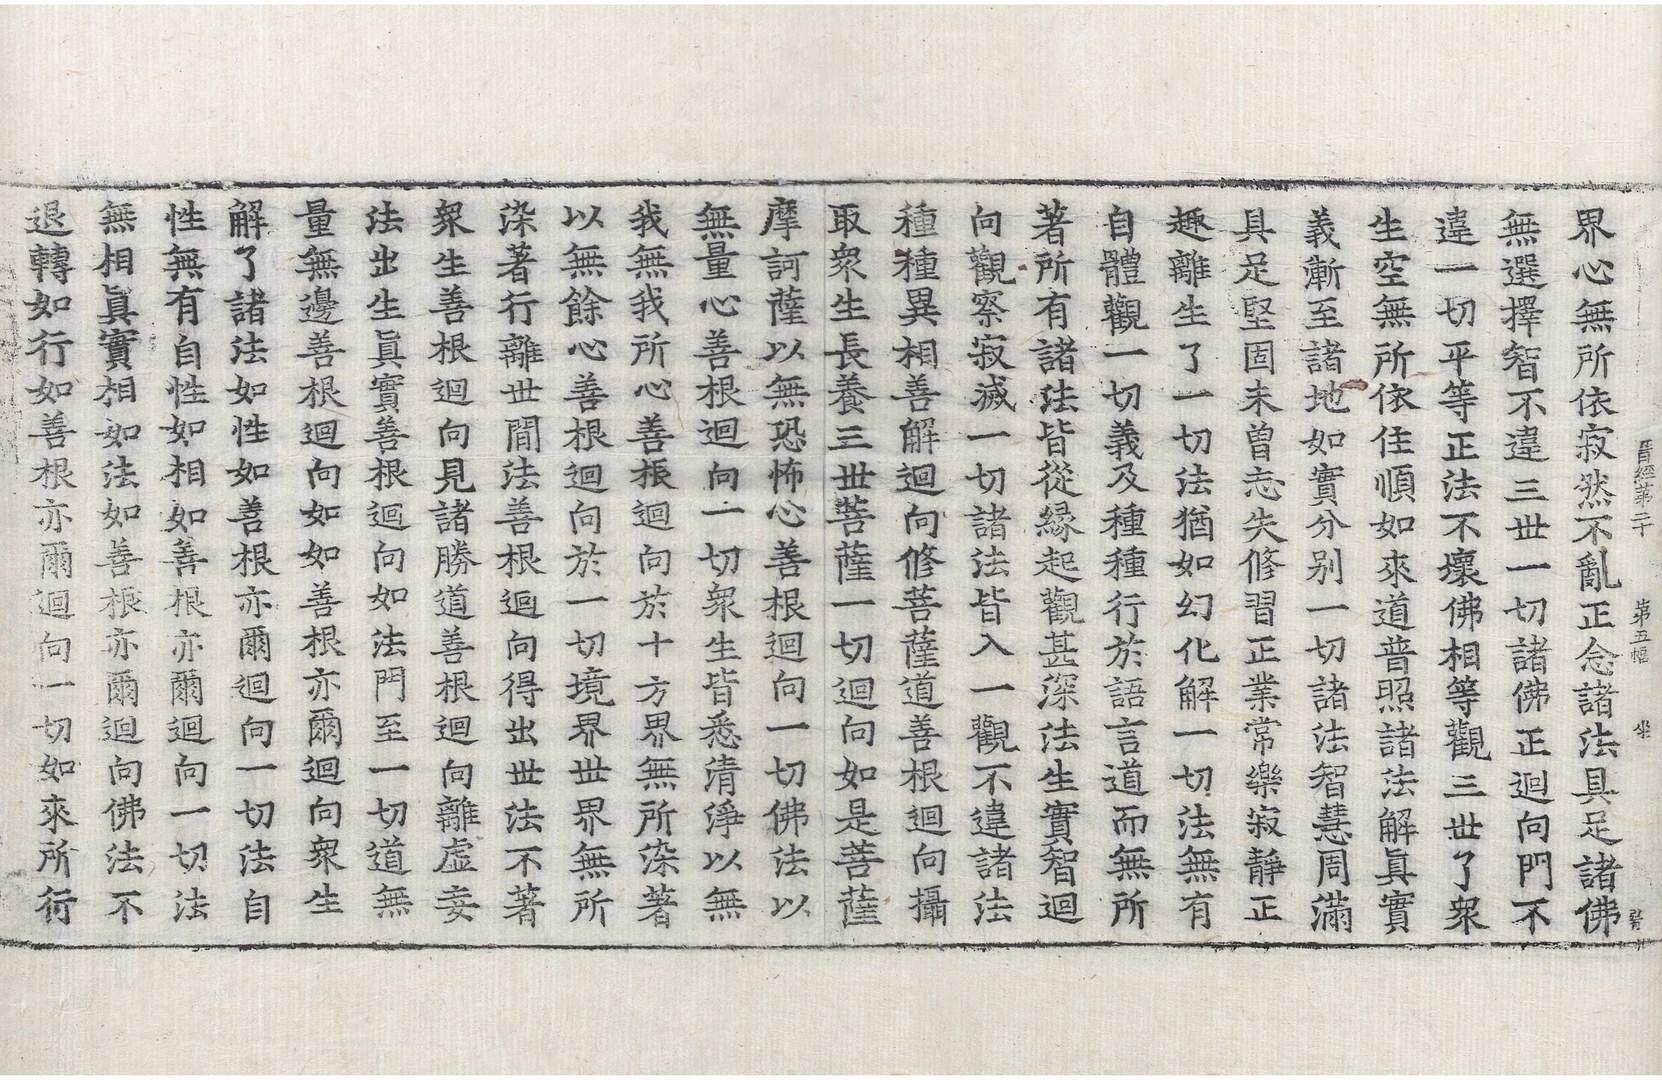 晉經第二十 第五幅 坐
界心無所依寂然不亂正念諸法具足諸佛
無選擇智不違三世一切諸佛正迴向門不
違一切平等正法不壞佛相等觀三世了衆
生空無所依住順如來道普照諸法解眞實
義漸至諸地如實分別一切諸法智慧周滿
具足堅固未曾忘失修習正業常樂寂靜正
趣離生了一切法猶如幻化解一切法無有
自體觀一切義及種種行於語言道而無所
著所有諸法皆從緣起觀甚深法生實智迴
向觀察寂滅一切諸法皆入一觀不違諸法
種種異相善解迴向修菩薩道善根迴向攝
取衆生長養三世菩薩一切迴向如是菩薩
摩訶薩以無恐怖心善根迴向一切佛法以
無量心善根迴向一切衆生皆悉清淨以無
我無我所心善根迴向於十方界無所染著
以無餘心善根迴向於一切境界世界無所
染著行離世間法善根迴向得出世法不著
衆生善根迴向見諸勝道善根迴向離虛妄
法出生眞實善根迴向如法門至一切道無
量無邊善根迴向如如善根亦爾迴向衆生
解了諸法如性如善根亦爾迴向一切法自
性無有自性如相如善根亦爾迴向一切法
無相眞實相如法如善根亦爾迴向佛法不
退轉如行如善根亦爾迴向一切如來所行